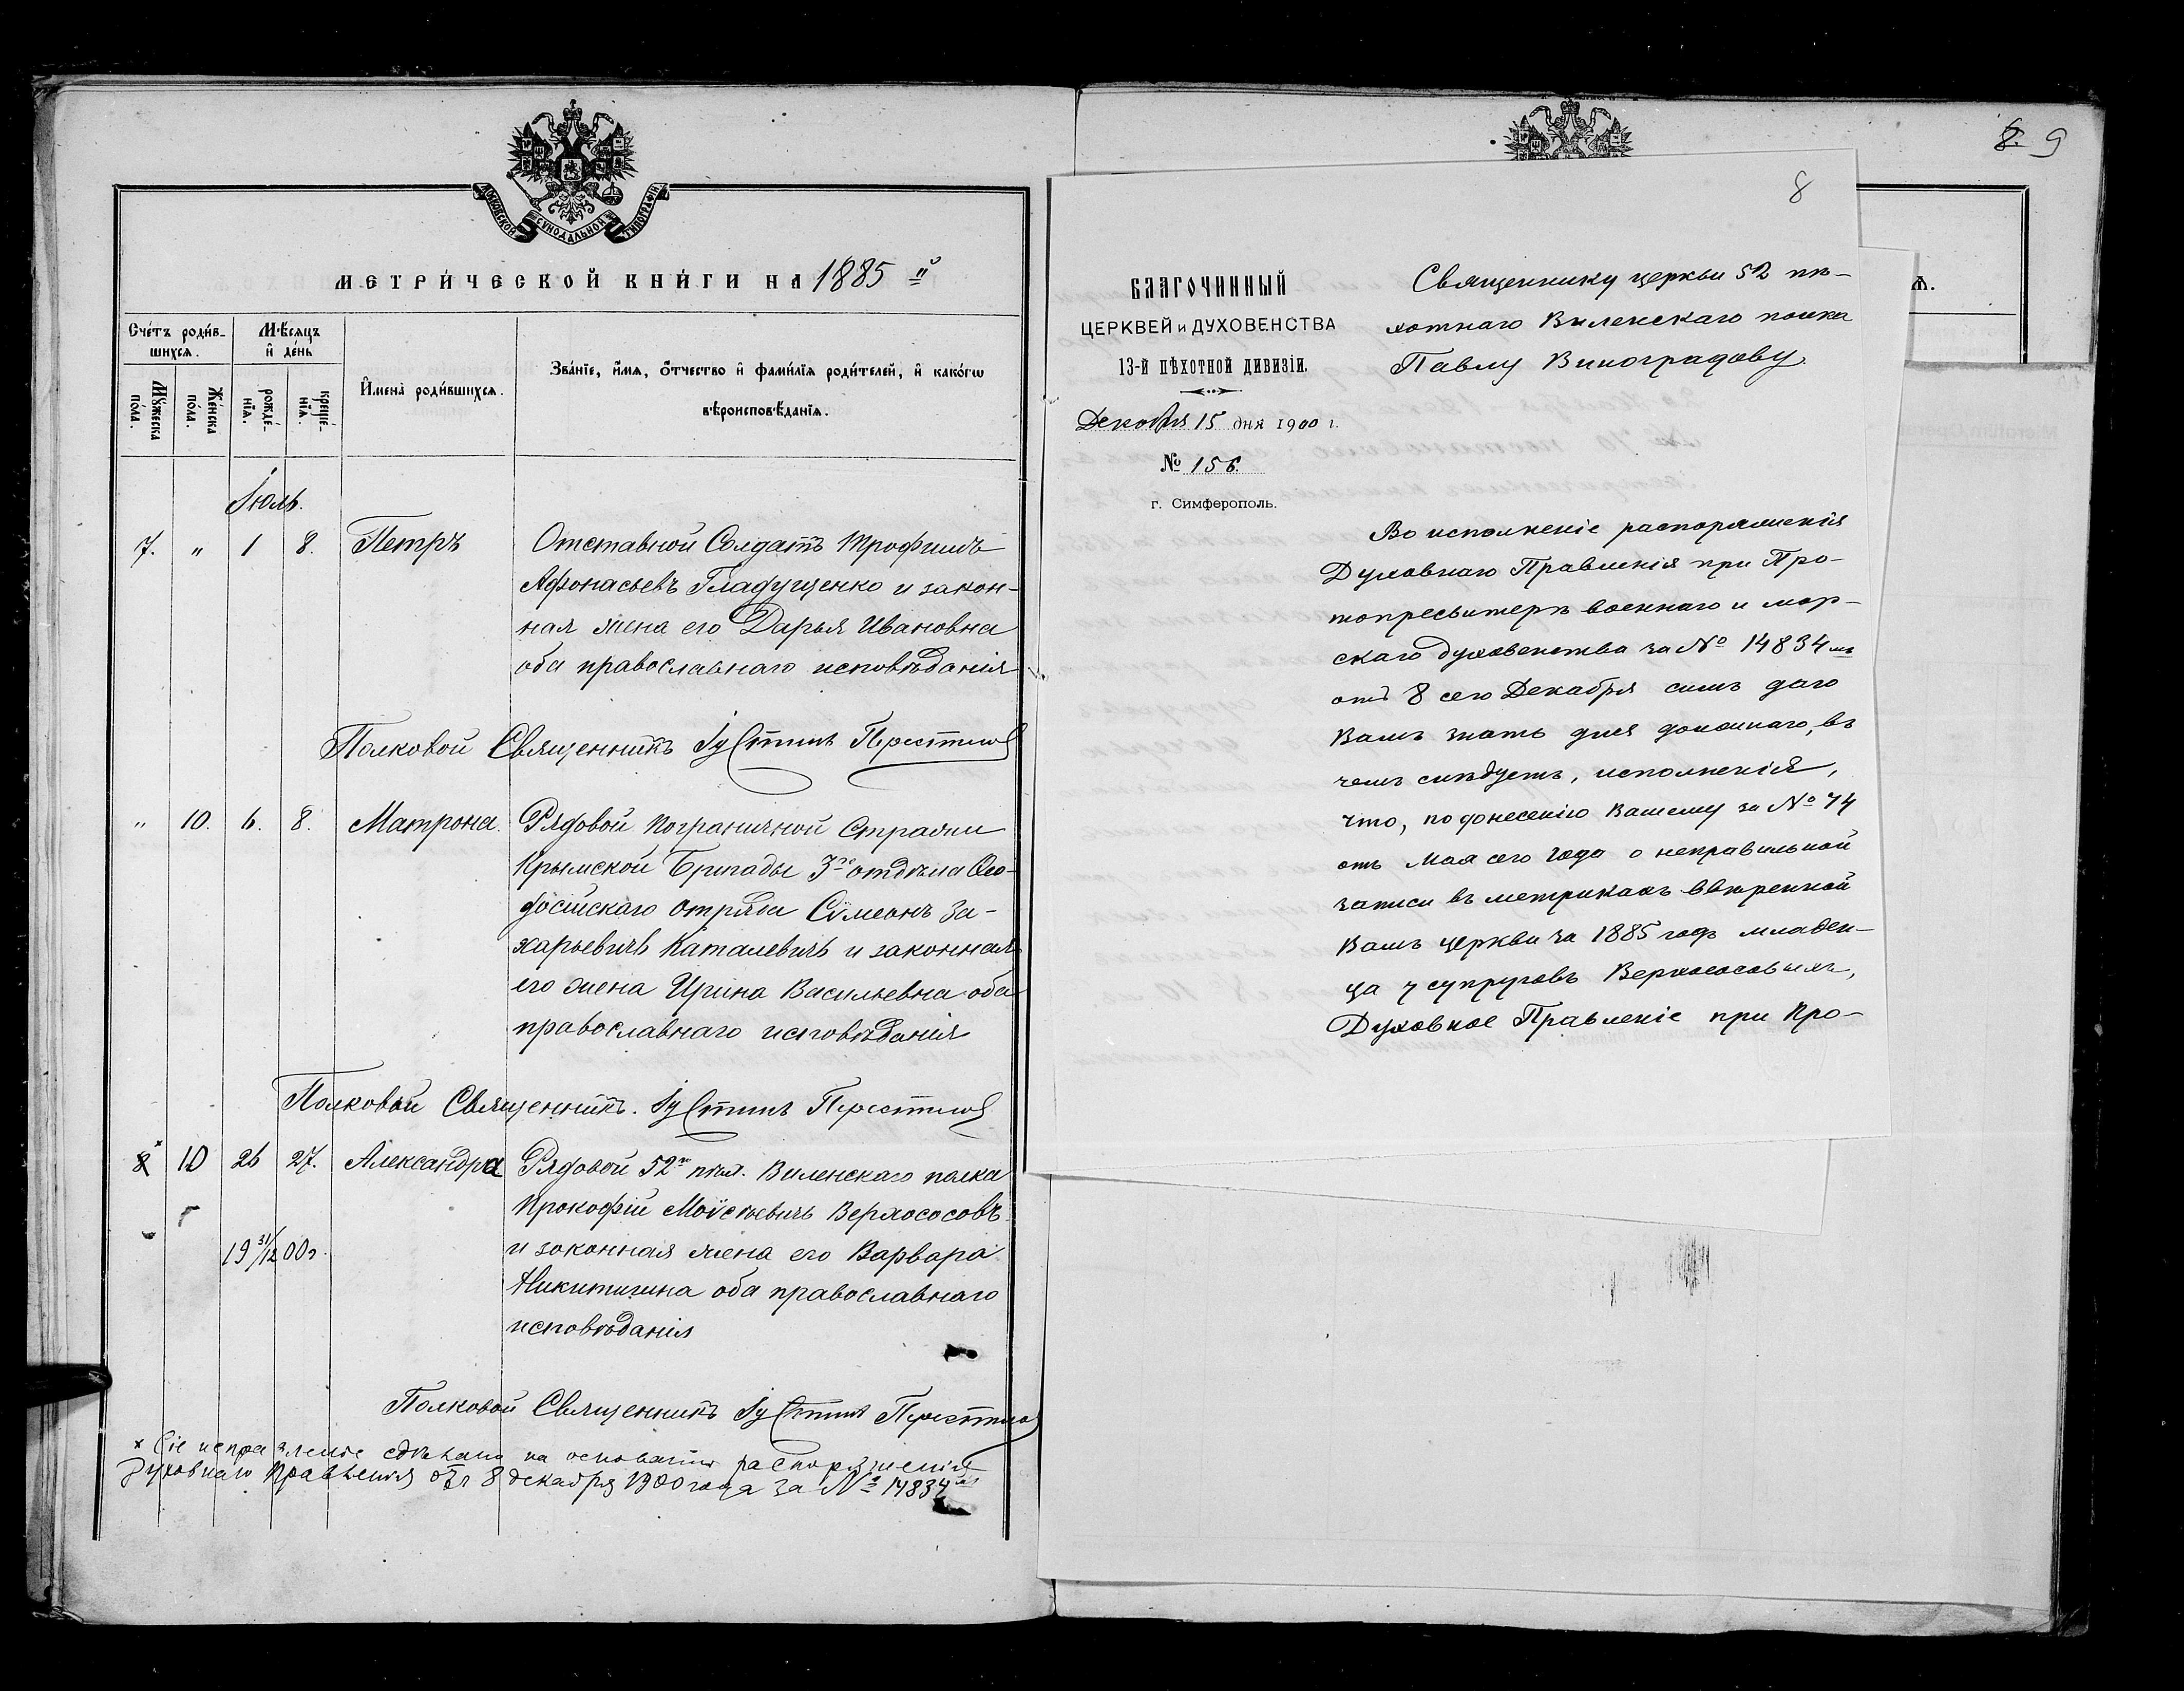 МОСКОВСКОЙ СУНОДАЛЬНОЙ ТИПОГРАФІИ
МЕТРИ́ЧЕСКОЙ КНИ́ГИ НА 1885 й
Сче́тъ роди́в-
шихсѧ.
Мѣ́сѧцъ
и҆ де́нь
Мꙋ́жеска
по́ла.
Же́нска
по́ла.
рожде́-
нїѧ.
креще́-
нїѧ.
И҆мена̀ роди́вшихсѧ.
Зва́нїе, и҆́мѧ, ѻ҆́тчество и҆ фами́лїѧ роди́телей, и҆ како́гѡ
вѣроисповѣ́данїѧ.
Іюль.
7. " 1 8. Петръ Отставной Солдатъ Трофимъ
Афонасьевъ Гладущенко и закон-
ная жена его Дарья Ивановна
оба православнаго исповѣданія
Полковой Священникъ Іустинъ
" 10. 6. 8. Матрона. Рядовой Пограничной Стражи
Крымской Бригады 3го отдѣла Ѳео-
досійскаго Отряда Сѵмеонъ За-
харьевичъ Каталевичъ и законная
его жена Ирина Васильевна оба
православнаго исповѣданія
Полковой Священникъ. Іустинъ
8 × 10 26 27. Александра Рядовой 52го пѣх. Виленскаго полка
Прокофій Моѵсѣевичъ Верхососовъ
19 31/12 00 г. и законная жена его Варвара
Никитична оба православнаго
исповѣданія
Полковой Священникъ Іустинъ
× Сіе исправленіе сдѣлано на основаніи распоряженія
Духовнаго Правленія отъ 8 декабря 1900 года за № 14834мъ
8. 9
8
БЛАГОЧИННЫЙ
ЦЕРКВЕЙ и ДУХОВЕНСТВА
13-й ПѢХОТНОЙ ДИВИЗІИ.
Декабря 15 дня 1900 г.
№ 156.
г. Симферополь.
Священнику церкви 52 пѣ-
хотнаго Виленскаго полка
Павлу Виноградову.
Во исполненіе распоряженія
Духовнаго Правленія при Про-
топресвитерѣ военнаго и мор-
скаго духовенства за № 14834мъ
отъ 8 сего Декабря симъ даю
Вамъ знать для должнаго, въ
чемъ слѣдуетъ, исполненія,
что, по донесенію Вашему за № 74
отъ Мая сего года о неправильной
записи въ метрикахъ ввѣренной
Вамъ церкви за 1885 годъ младен-
ца у супруговъ Верхососовыхъ,
Духовное Правленіе при Про-
ѧ.